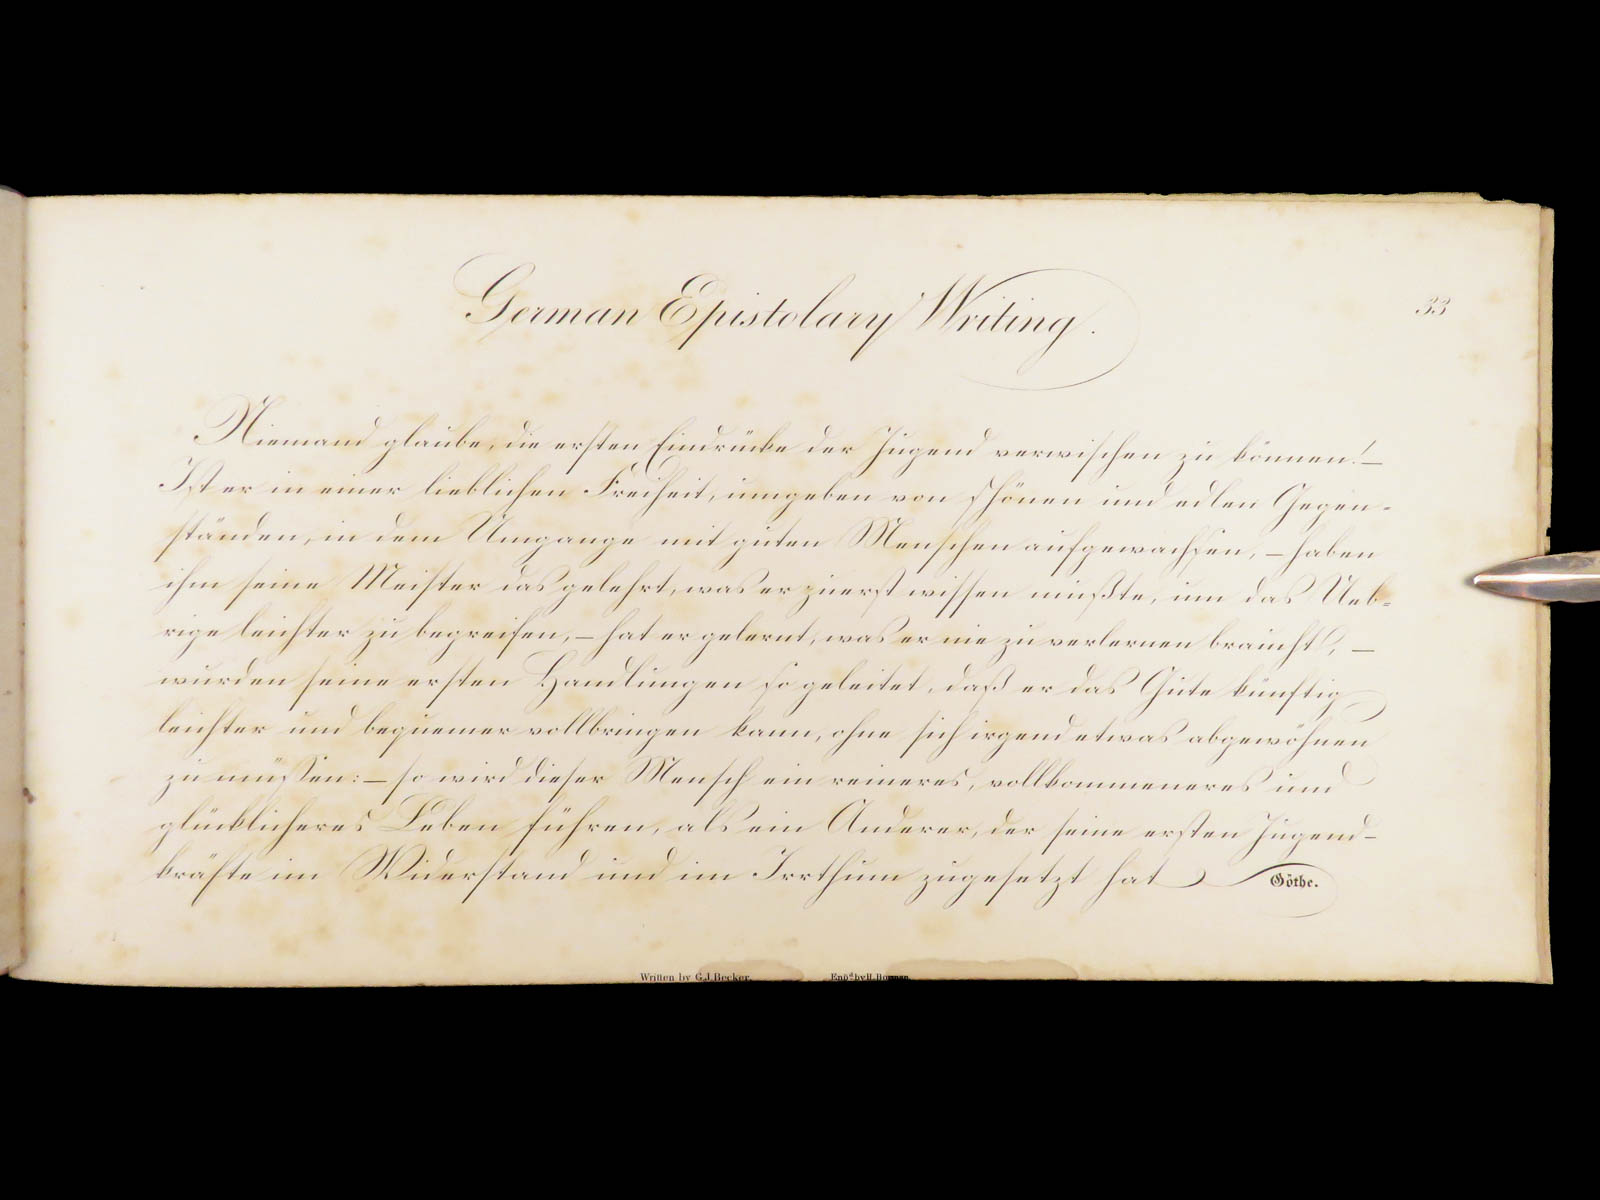 German Epistolary Writing.
33
Niemand glaube, die ersten Eindrücke der Jugend verwischen zu können! —
Ist er in einer lieblichen Freiheit, umgeben von schönen und edlen Gegen-
ständen, in dem Umgange mit guten Menschen aufgewachsen, — haben
ihm seine Meister das gelehrt, was er zuerst wissen mußte, um das Ueb-
rige leichter zu begreifen, — hat er gelernt, was er nie zu verlernen braucht, —
wurden seine ersten Handlungen so geleitet, daß er das Gute künftig
leichter und bequemer vollbringen kann, ohne sich irgend etwas abgewöhnen
zu müssen: — so wird dieser Mensch ein reineres, vollkommeneres und
glücklicheres Leben führen, als ein Anderer, der seine ersten Jugend-
kräfte im Widerstand und im Irrthum zugesetzt hat
Göthe.
Written by G.J. Becker. Engd. by